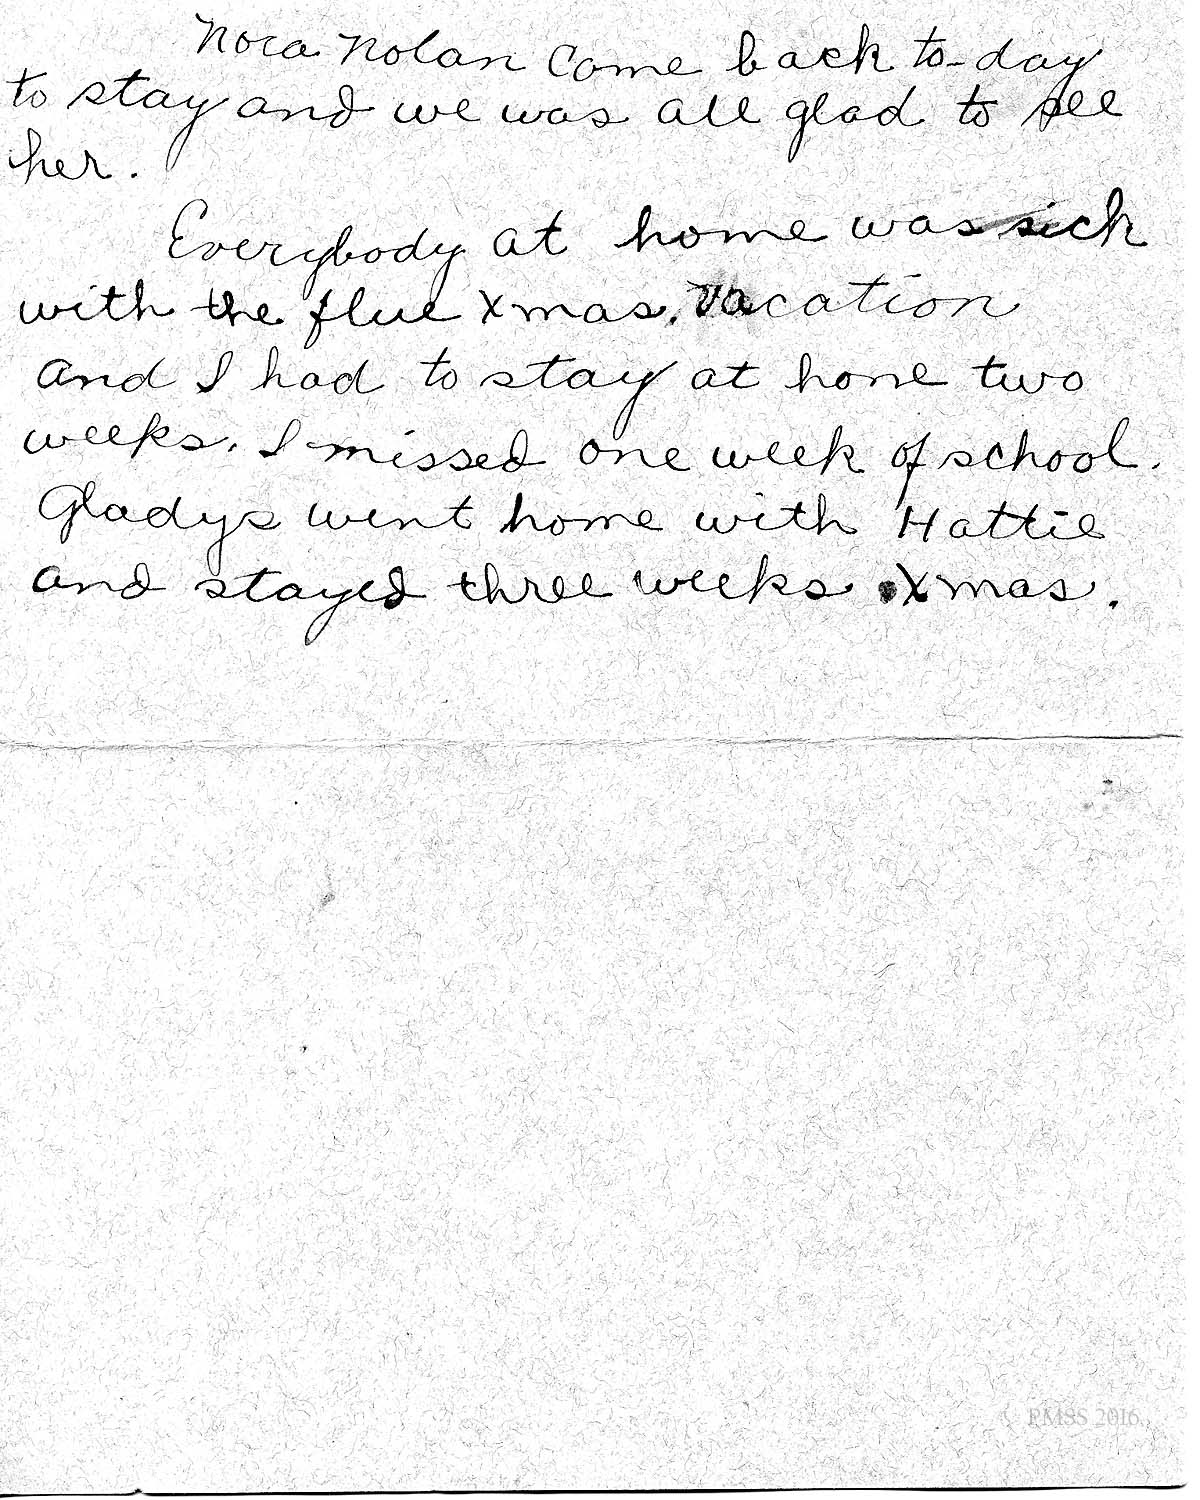 Nora Nolan Come back to-day
to stay and we was all glad to see
her.
Everybody at home was sick
with the flue Xmas. Vacation
and I had to stay at hone two
weeks. I missed one week of school.
Gladys went home with Hattie
and stayed three weeks Xmas.
PMSS 2016